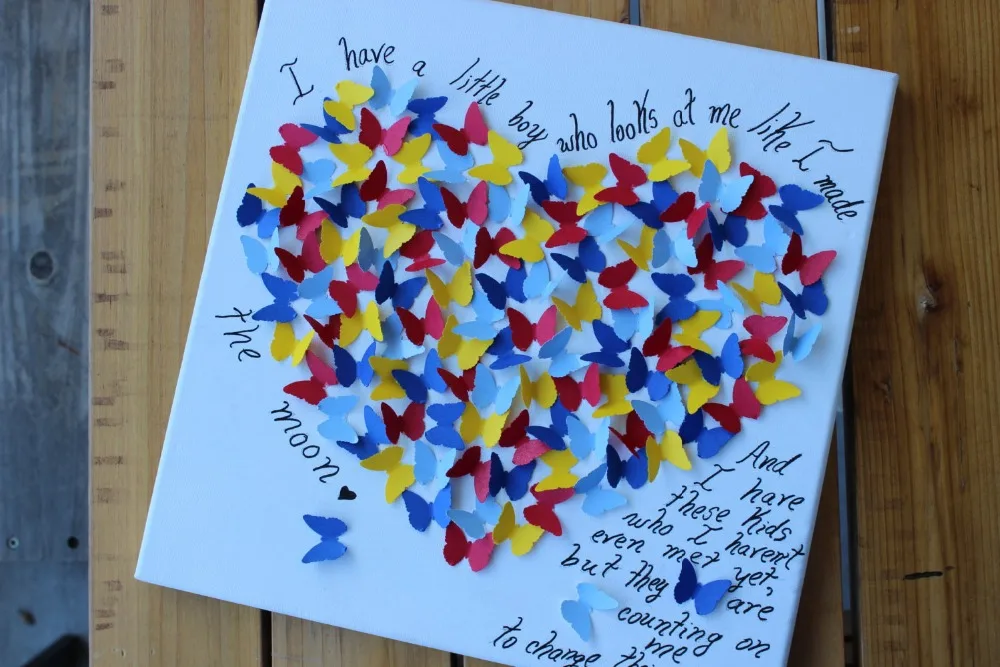 I have a little boy who looks at me like I made
the
moon
And
I have
these kids
who I haven't
even met yet,
but they are
counting on
me
to change